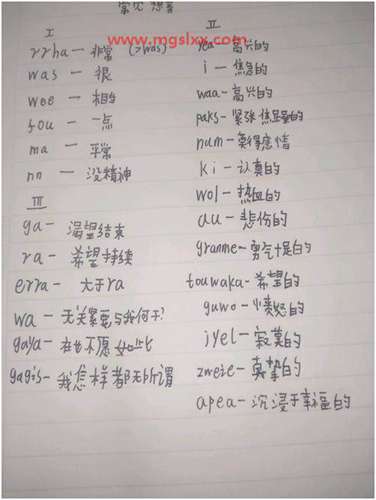 常见 想音
www.mgslxx.com
I
rrha — 非常 (>was)
was — 很
wee — 相当
fou — 一点
ma — 平常
nn — 没精神
III
ga — 渴望结束
ra — 希望持续
erra — 大于ra
wa — 无关紧要与我何干?
gaya — 在也不愿如此
gagis — 我怎样都无所谓
II
yea — 高兴的
i — 焦急的
waa — 高兴的
paks — 紧张焦虑的
num — 莫得感情
ki — 认真的
wol — 热血的
au — 悲伤的
granme — 勇气十足的
touwaka — 希望的
guwo — 愤怒的
jyel — 寂寞的
zweie — 真挚的
apea — 沉浸于幸福的